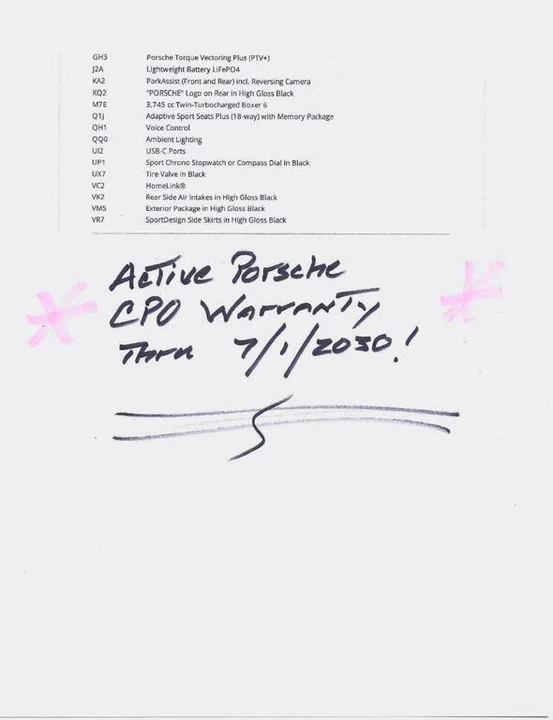 GH3 Porsche Torque Vectoring Plus (PTV+)
J2A Lightweight Battery LiFePO4
KA2 ParkAssist (Front and Rear) incl. Reversing Camera
KQ2 "PORSCHE" Logo on Rear in High Gloss Black
M7E 3,745 cc Twin-Turbocharged Boxer 6
Q1J Adaptive Sport Seats Plus (18-way) with Memory Package
QH1 Voice Control
QQ0 Ambient Lighting
UI2 USB-C Ports
UP1 Sport Chrono Stopwatch or Compass Dial in Black
UX7 Tire Valve in Black
VC2 HomeLink®
VK2 Rear Side Air Intakes in High Gloss Black
VM5 Exterior Package in High Gloss Black
VR7 SportDesign Side Skirts in High Gloss Black
Active Porsche
CPO Warranty
Thru 7/1/2030!